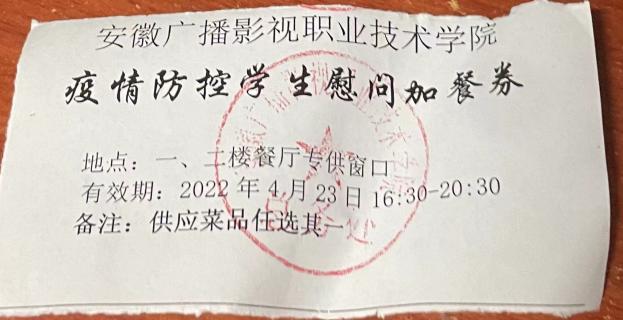 安徽广播影视职业技术学院
疫情防控学生慰问加餐券
地点：一、二楼餐厅专供窗口
有效期：2022年4月23日16:30-20:30
备注：供应菜品任选其一